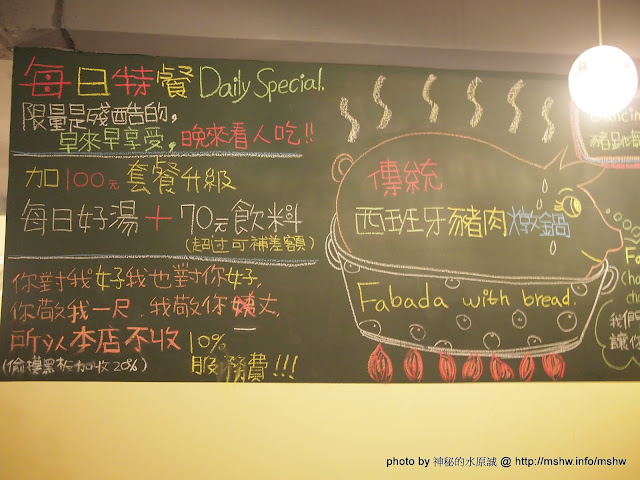 每日特餐 Daily Special.
限量是殘酷的,
早來早享受, 晚來看人吃!!
加100元 套餐升級
每日好湯 + 70元飲料
(超过可補差額)
你對我好我也對你好,
你敬我一尺, 我敬你一丈,
所以本店不收 10%
服務費!!!
(偷摸黑板加收20%)
傳統
西班牙豬肉燉鍋
Fabada with bread.
我們
讓你
photo by 神秘的水原誠 @ http://mshw.info/mshw